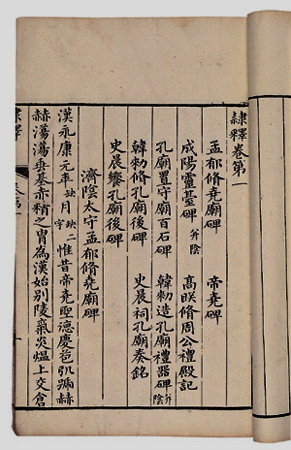 隸釋卷第一
孟郁脩堯廟碑 帝堯碑
成陽靈臺碑并陰 高眹脩周公禮殿記
孔廟置守廟百石碑 韓勑造孔廟禮器碑并陰
韓勑脩孔廟後碑 史晨祠孔廟奏銘
史晨饗孔廟後碑
濟陰太守孟郁脩堯廟碑
漢永康元年缺月缺二字惟昔帝堯聖德慶苞弘漏赫
赫蕩蕩垂基赤精之胄為漢始別陵氣炎煴上交倉
隸釋 卷第一